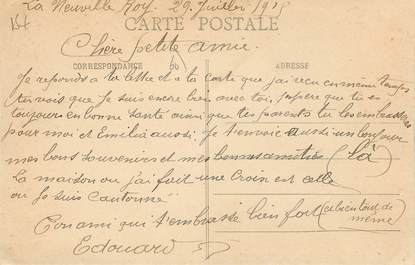 La Neuville Roy. 29. Juillet 1915
CARTE POSTALE
Chère petite amie.
CORRESPONDANCE ADRESSE
Je reponds a ta lettre et a ta carte que j'ai recu en même temps
tu vois que je suis encore bien avec toi, j'espère que tu es
toujours en bonne santé ainsi que tes parents tu les embrasseras
pour moi et Emilia aussi. Je t'envoie aussi un bonjour
mes bons souvenirs et mes bonnes amitiés (là
La maison ou j'ai fait une croix est celle
ou je suis cantonné
Ton ami qui t'embrasse bien fort (et bien tout de
même)
Edouard